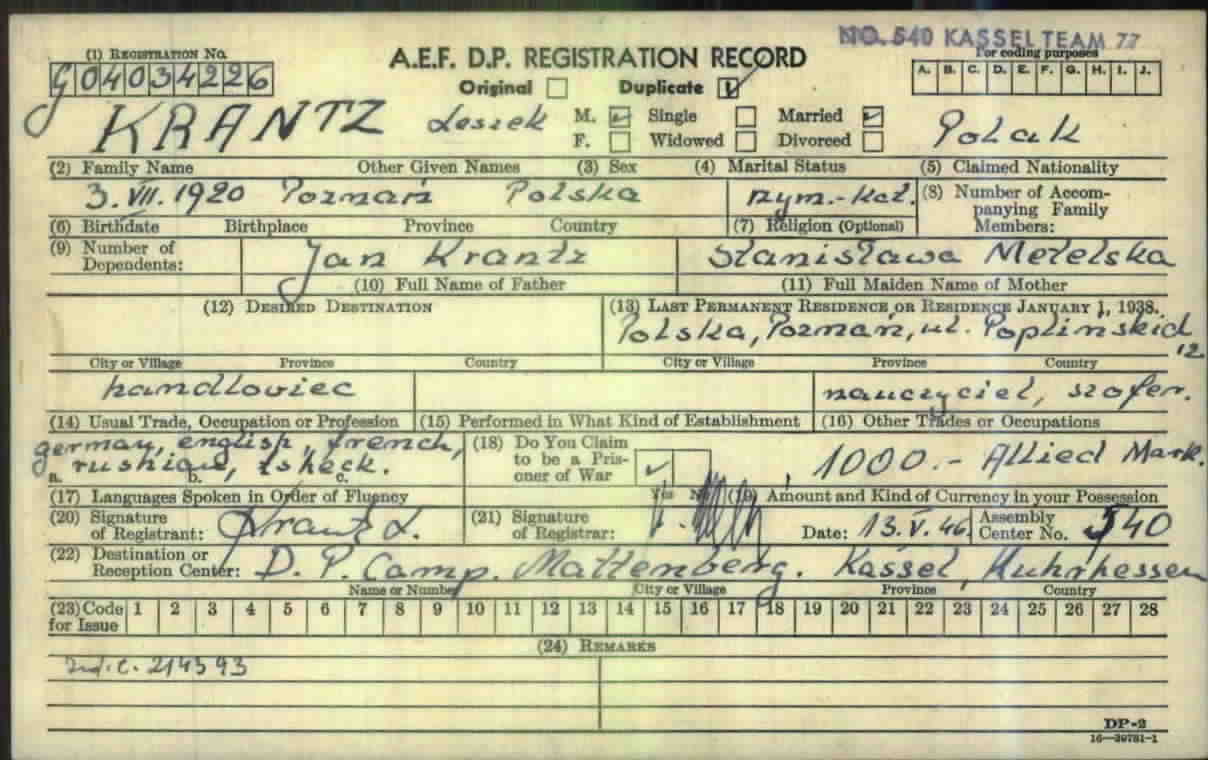 NO. 540 KASSEL TEAM 77
(1) REGISTRATION NO.
G04034226
A.E.F. D.P. REGISTRATION RECORD
For coding purposes
A. B. C. D. E. F. G. H. I. J.
Original Duplicate
KRANTZ Leszek M. Single Married Polak
F. Widowed Divorced
(2) Family Name Other Given Names (3) Sex (4) Marital Status (5) Claimed Nationality
3. VII. 1920 Poznań Polska rzym.-kat. (8) Number of Accompanying Family Members:
(6) Birthdate Birthplace Province Country (7) Religion (Optional)
(9) Number of Dependents: Jan Krantz Stanisława Metelska
(10) Full Name of Father (11) Full Maiden Name of Mother
(12) DESIRED DESTINATION (13) LAST PERMANENT RESIDENCE OR RESIDENCE JANUARY 1, 1938.
Polska, Poznań, ul. Poplinskich 12
City or Village Province Country City or Village Province Country
handlowiec nauczyciel, szofer.
(14) Usual Trade, Occupation or Profession (15) Performed in What Kind of Establishment (16) Other Trades or Occupations
german, english, french,
rushique, tsheck.
a. b. c.
(18) Do You Claim to be a Prisoner of War Yes No
1000.- Allied Mark.
(17) Languages Spoken in Order of Fluency (19) Amount and Kind of Currency in your Possession
(20) Signature of Registrant: Krantz L. (21) Signature of Registrar: Date: 13.V.46. Assembly Center No. 540
(22) Destination or Reception Center: D. P. Camp. Mattenberg. Kassel, Kuhrhessen
Name or Number City or Village Province Country
(23) Code for Issue 1 2 3 4 5 6 7 8 9 10 11 12 13 14 15 16 17 18 19 20 21 22 23 24 25 26 27 28
(24) REMARKS
214393
DP-2
16—39781-1